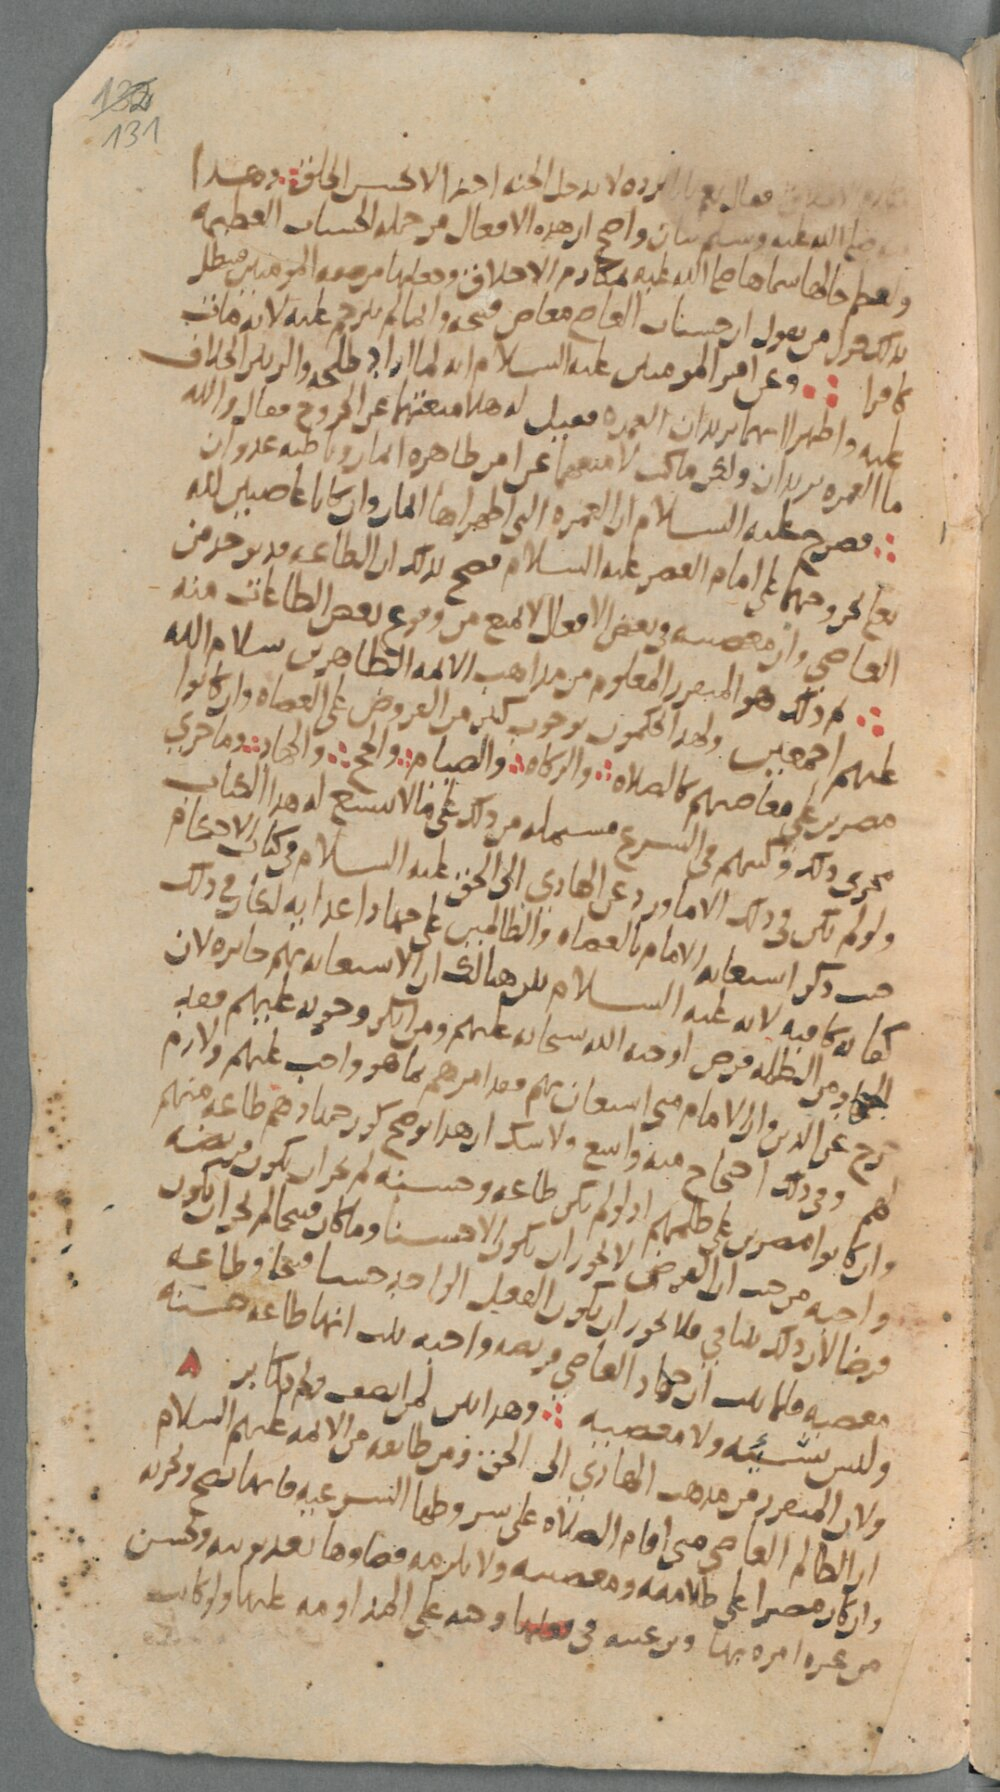 132
131
مكارم الاخلاق فقال نعم يابا برده لا يدخل الجنه احد الا بحسن الخلق ∴ وهذا
صلى الله عليه وسلم بيان واضح ان هذه الافعال من جمله الحسنات العظيمه
ولعظم حالها سماها صلى الله عليه مكارم الاخلاق وجعلها من صفه المومنين فبطل
بذلك قول من يقول ان حسنات العاصي معاص قبيحه وانما لم يترحم عليه لانه مات
كافرا ∴ وعن امير المومنين عليه السلام انه لما اراد طلحه والزبير الخلاف
عليه واظهرا انهما يريدان العمره فقيل له هلا منعتهما عن الخروج فقال والله
ما العمره يريدان ولكن ما كنت لامنعهما عن امر ظاهره ايمان وباطنه عدوان
∴ فصرح عليه السلام ان العمره التي اظهراها ايمان وان كانا عاصيين لله
تعالى بخروجهما على امام العصر عليه السلام فصح بذلك ان الطاعه قد توجد من
العاصي وان معصيته في بعض الافعال لا تمنع من وقوع بعض الطاعات منه
∴ ثم ذلك هو المتقرر المعلوم من مذاهب الائمه الطاهرين سلام الله
عليهم اجمعين ولهذا يحكمون بوجوب كثير من الفروض على العصاه وان كانوا
مصرين على معاصيهم كالصلاه ∴ والزكاه ∴ والصيام ∴ والحج ∴ والجهاد ∴ وما جرى
مجرى ذلك وكتبهم في الشرع مشتمله من ذلك على ما لا يتسع له هذا الكتاب
ولو لم يكن في ذلك الا ما ورد عن الهادي الى الحق عليه السلام في كتاب الاحكام
حيث ذكر استعانه الامام بالعصاه والظالمين على جهاد اعدايه لكان في ذلك
كفايه كافيه لانه عليه السلام بين هنالك ان الاستعانه بهم جايزه لان
الجهاد من الظلمه فرض اوجبه الله سبحانه عليهم ومن انكر وجوبه عليهم فقد
خرج عن الدين وان الامام متى استعان بهم فقد امرهم بما هو واجب عليهم ولازم
لهم وفي ذلك احتجاج منه واسع ولا شك ان هذا يوضح كون جهادهم طاعه منهم
وان كانوا مصرين على ظلمهم اذ لو لم يكن طاعه وحسنه لم يجز ان يكون فريضه
واجبه من حيث ان الفرض لا يجوز ان يكون الا حسنا وما كان قبيحا لم يجز ان يكون
فرضا لان ذلك يتنافى فلا يجوز ان يكون الفعل الواحد حسنا قبيحا وطاعه
معصيه فلما ثبت ان جهاد العاصي فريضه واجبه ثبت انها طاعه حسنه
وليس بسيئه ولا معصيه ∴ وهذا بين لمن انصف ولم يكابر
ولان المتقرر من مذهب الهادي الى الحق ومن طابقه من الائمه عليهم السلام
ان الظالم العاصي متى اقام الصلاه على شروطها الشرعيه فانها تصح وتجزيه
وان كان مصرا على ظلامته ومعصيته ولا يلزمه قضاوها بعد توبته ويحسن
من غيره امره بها وترغيبه في فعلها وحثه على المداومه عليها ولو كانت